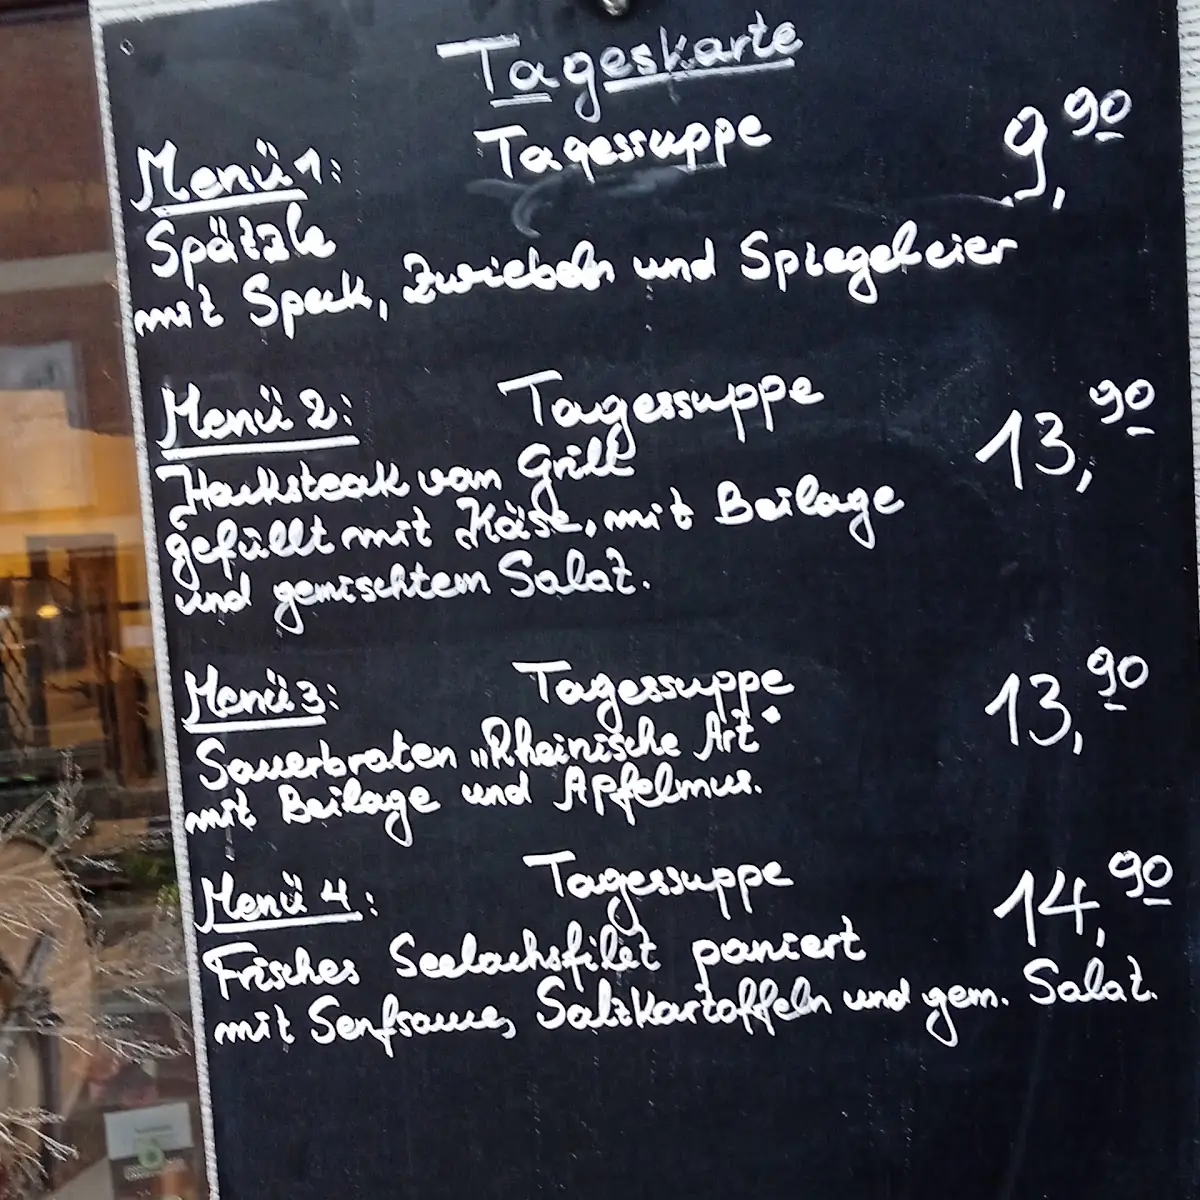 Tageskarte
Menü 1: Tagessuppe 9,90
Spätzle
mit Speck, Zwiebeln und Spiegeleier
Menü 2: Tagessuppe 13,90
Hacksteak vom Grill
gefüllt mit Käse, mit Beilage
und gemischtem Salat.
Menü 3: Tagessuppe 13,90
Sauerbraten „Rheinische Art"
mit Beilage und Apfelmus.
Menü 4: Tagessuppe 14,90
Frisches Seelachsfilet paniert
mit Senfsauce, Salzkartoffeln und gem. Salat.